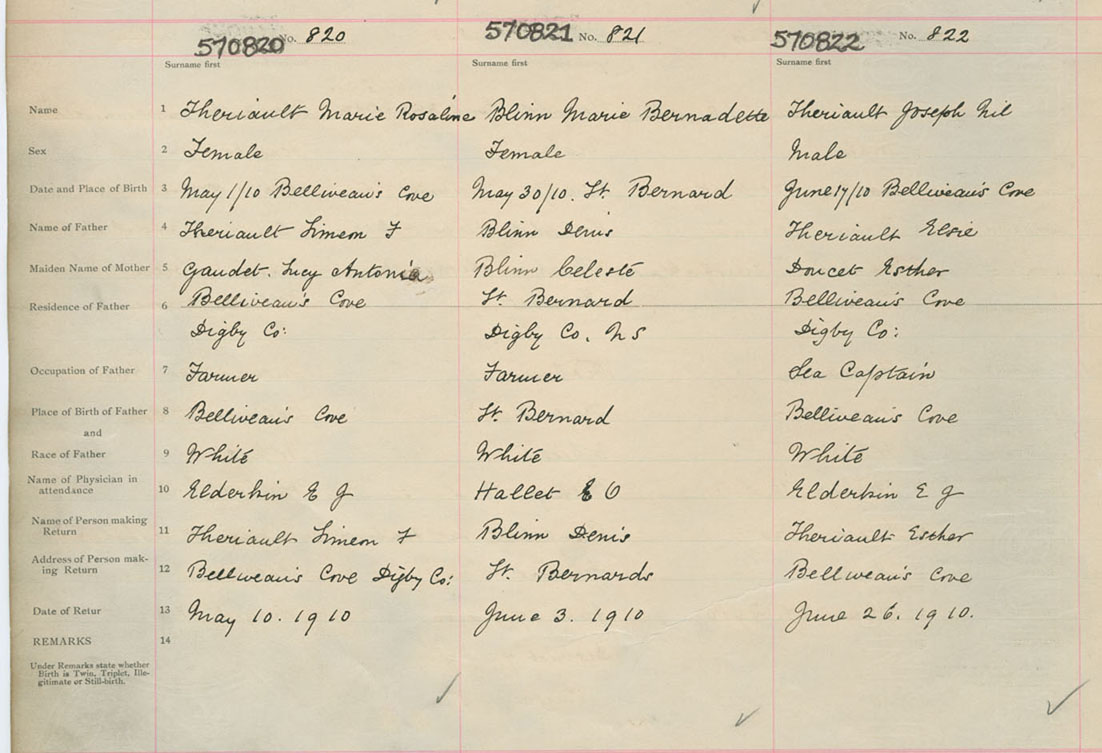 570820 No. 820 570821 No. 821 570822 No. 822
Surname first Surname first Surname first
Name 1 Theriault Marie Rosaline Blinn Marie Bernadette Theriault Joseph Nil
Sex 2 Female Female Male
Date and Place of Birth 3 May 1/10 Belliveau's Cove May 30/10. St. Bernard June 17/10 Belliveau's Cove
Name of Father 4 Theriault Simeon F Blinn Denis Theriault Elsie
Maiden Name of Mother 5 Gaudet. Lucy Antonia Blinn Celeste Doucet Esther
Residence of Father 6 Belliveau's Cove St. Bernard Belliveau's Cove
Digby Co: Digby Co. N S Digby Co:
Occupation of Father 7 Farmer Farmer Sea Captain
Place of Birth of Father 8 Belliveau's Cove St. Bernard Belliveau's Cove
and
Race of Father 9 White White White
Name of Physician in
attendance 10 Elderkin E J Hallet E O Elderkin E J
Name of Person making
Return 11 Theriault Simeon F Blinn Denis Theriault Esther
Address of Person mak-
ing Return 12 Belliveau's Cove Digby Co: St. Bernards Belliveau's Cove
Date of Retur 13 May 10. 1910 June 3. 1910 June 26. 1910.
REMARKS 14
Under Remarks state whether
Birth is Twin, Triplet, Ille-
gitimate or Still-birth.